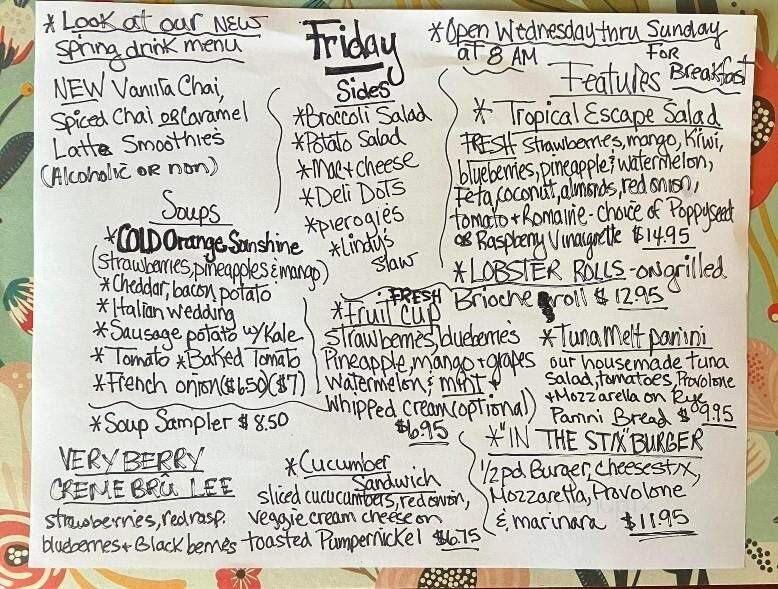 * Look at our NEW
spring drink menu
NEW Vanilla Chai,
Spiced Chai OR Caramel
Latte Smoothies
(Alcoholic OR non)
Soups
*COLD Orange Sunshine
(strawberries, pineapples & mango)
* Cheddar, bacon, potato
* Italian wedding
* Sausage potato w/ Kale
* Tomato * Baked Tomato
* French onion ($6.50) ($7)
* Soup Sampler $8.50
VERY BERRY
CREME BRU LEE
strawberries, red rasp.
blueberries + Black berries
Friday
Sides
*Broccoli Salad
*Potato Salad
*Mac + cheese
*Deli Dots
*pierogies
*Lindy's
slaw
FRESH
*Fruit Cup
strawberries, blueberries
Pineapple, mango + grapes
watermelon & mint +
whipped cream (optional)
$6.95
*Cucumber
Sandwich
sliced cucucumbers, red onion,
veggie cream cheese on
toasted Pumpernickel $6.75
*Open Wednesday thru Sunday
at 8 AM FOR
Breakfast
Features
* Tropical Escape Salad
FRESH strawberries, mango, Kiwi,
blueberries, pineapple & watermelon,
Feta, coconut, almonds, red onion,
tomato + Romaine - choice of Poppyseed
OR Raspberry Vinaigrette $14.95
*LOBSTER ROLLS - on grilled
Brioche roll $12.95
*Tuna Melt panini
our housemade tuna
Salad, tomatoes, Provolone
+ Mozzarella on Rye
Panini Bread $9.95
*"IN THE STIX" BURGER
1/2 pd. Burger, Cheesestix,
Mozzaretta, Provolone
& marinara $11.95